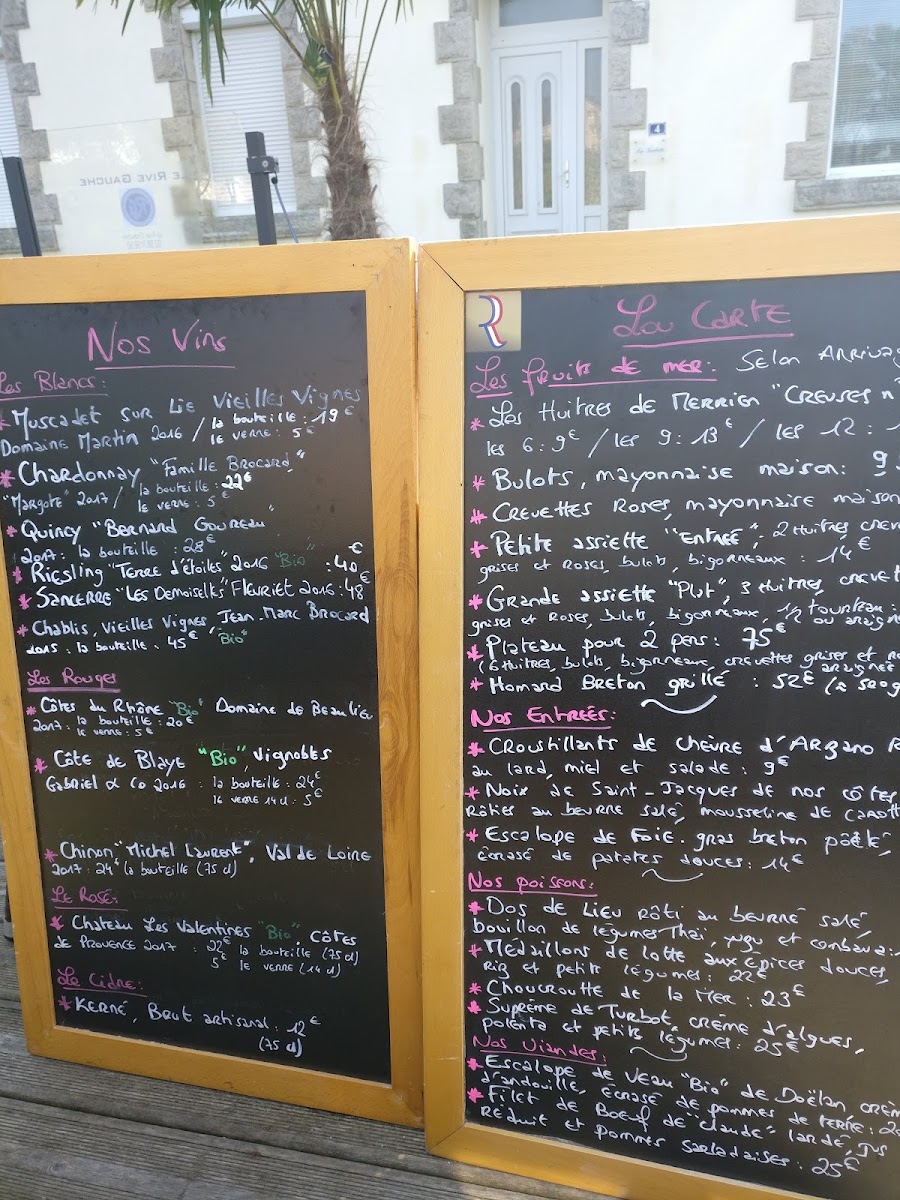 LE RIVE GAUCHE
4
Nos Vins
Les Blancs:
* Muscadet sur Lie Vieilles Vignes
Domaine Martin 2016 / la bouteille : 19€
le verre : 5€
* Chardonnay "Famille Brocard"
"Margote" 2017 / la bouteille : 22€
le verre : 5€
* Quincy "Bernard
2017 : la bouteille : 28€
* Riesling "Terre d'étoiles" 2016 "Bio" : 40€
* Sancerre "Les Demoiselles" Fleuriet 2016 : 48€
* Chablis, Vieilles Vignes, Jean-Marc Brocard
2015 : la bouteille : 45€ "Bio"
Les Rouges
* Côtes du Rhône "Bio" Domaine de Beaulieu
2017 : la bouteille : 20€
le verre : 5€
* Côte de Blaye "Bio", Vignobles
Gabriel & Co 2016 : la bouteille : 24€
le verre 14cl : 5€
* Chinon "Michel Laurent", Val de Loire
2017 : 24€ la bouteille (75 cl)
Le Rosé:
* Chateau Les Valentines "Bio" Côtes
de Provence 2017 : 22€ la bouteille (75 cl)
5€ le verre (14 cl)
Le Cidre:
* Kerné, Brut artisanal : 12€
(75 cl)
R
La Carte
Les fruits de mer: Selon Arrivag
* Les Huîtres de Merrien "Creuses n
les 6 : 9€ / les 9 : 13€ / les 12 : 1
* Bulots, mayonnaise maison : 9
* Crevettes Roses, mayonnaise maison
* Petite assiette "Entrée", 2 Huîtres, crev
grises et Roses, bulots, bigorneaux : 14€
* Grande assiette "Plat", 3 huîtres, crevett
grises et Roses, bulots, bigorneaux, 1/2 tourteau
ou araign
* Plateau pour 2 pers : 75€
(6 Huîtres, bulots, bigorneaux, crevettes grises et ro
araignée
* Homard Breton grillé : 52€ (
Nos Entrées:
* Croustillants de chèvre d'Arzano R
au lard, miel et salade : 9€
* Noix de Saint-Jacques de nos côtes
Rôties au beurre salé, mousseline de carott
* Escalope de Foie-gras breton poêlé,
écrasé de patates douces : 14€
Nos poissons:
* Dos de Lieu rôti au beurre salé,
bouillon de légumes Thaï, yuzu et combava :
* Médaillons de lotte aux épices douces,
Riz et petits légumes : 22€
* Choucroutte de la Mer : 23€
* Suprême de Turbot, crème d'algues,
polenta et petits légumes : 25€
Nos Viandes:
* Escalope de Veau "Bio" de Doëlan, crèm
d'andouille, écrasé de pommes de terre : 2
* Filet de Boeuf de "Claude" lardé, jus
réduit et pommes sarladaises : 25€